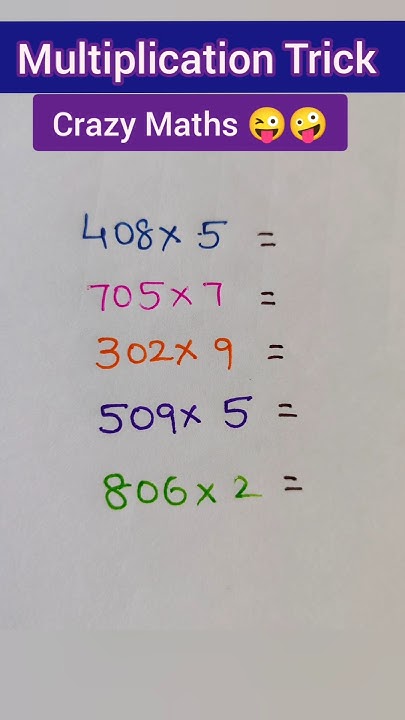 Multiplication Trick
Crazy Maths 😜🤪
408 × 5 =
705 × 7 =
302 × 9 =
509 × 5 =
806 × 2 =